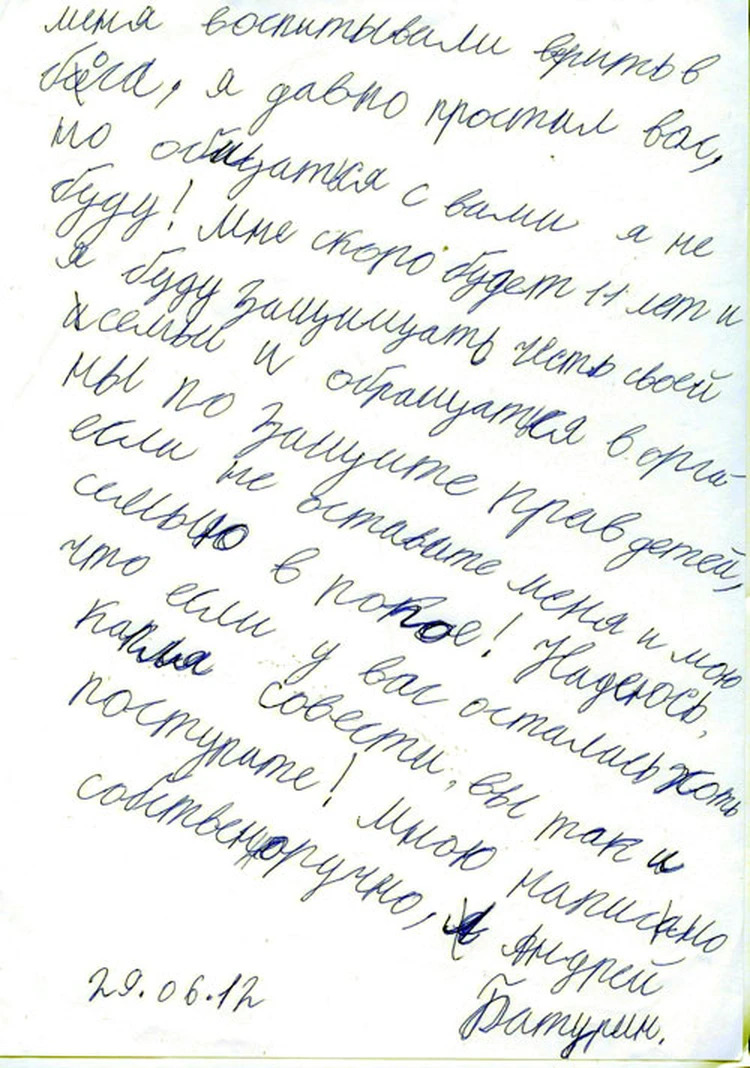 меня воспитывали врить в
бога, я давно простил вас,
но общаться с вами я не
буду! Мне скоро будет 11 лет и
я буду защищать честь своей
семьи и обращаться в орга-
ны по защите прав детей,
если не оставите меня и мою
семью в покое! Надеюсь,
что если у вас осталась хоть
капля совести, вы так и
поступите! Мною написано
собственоручно, Андрей
Батурин.
29.06.12